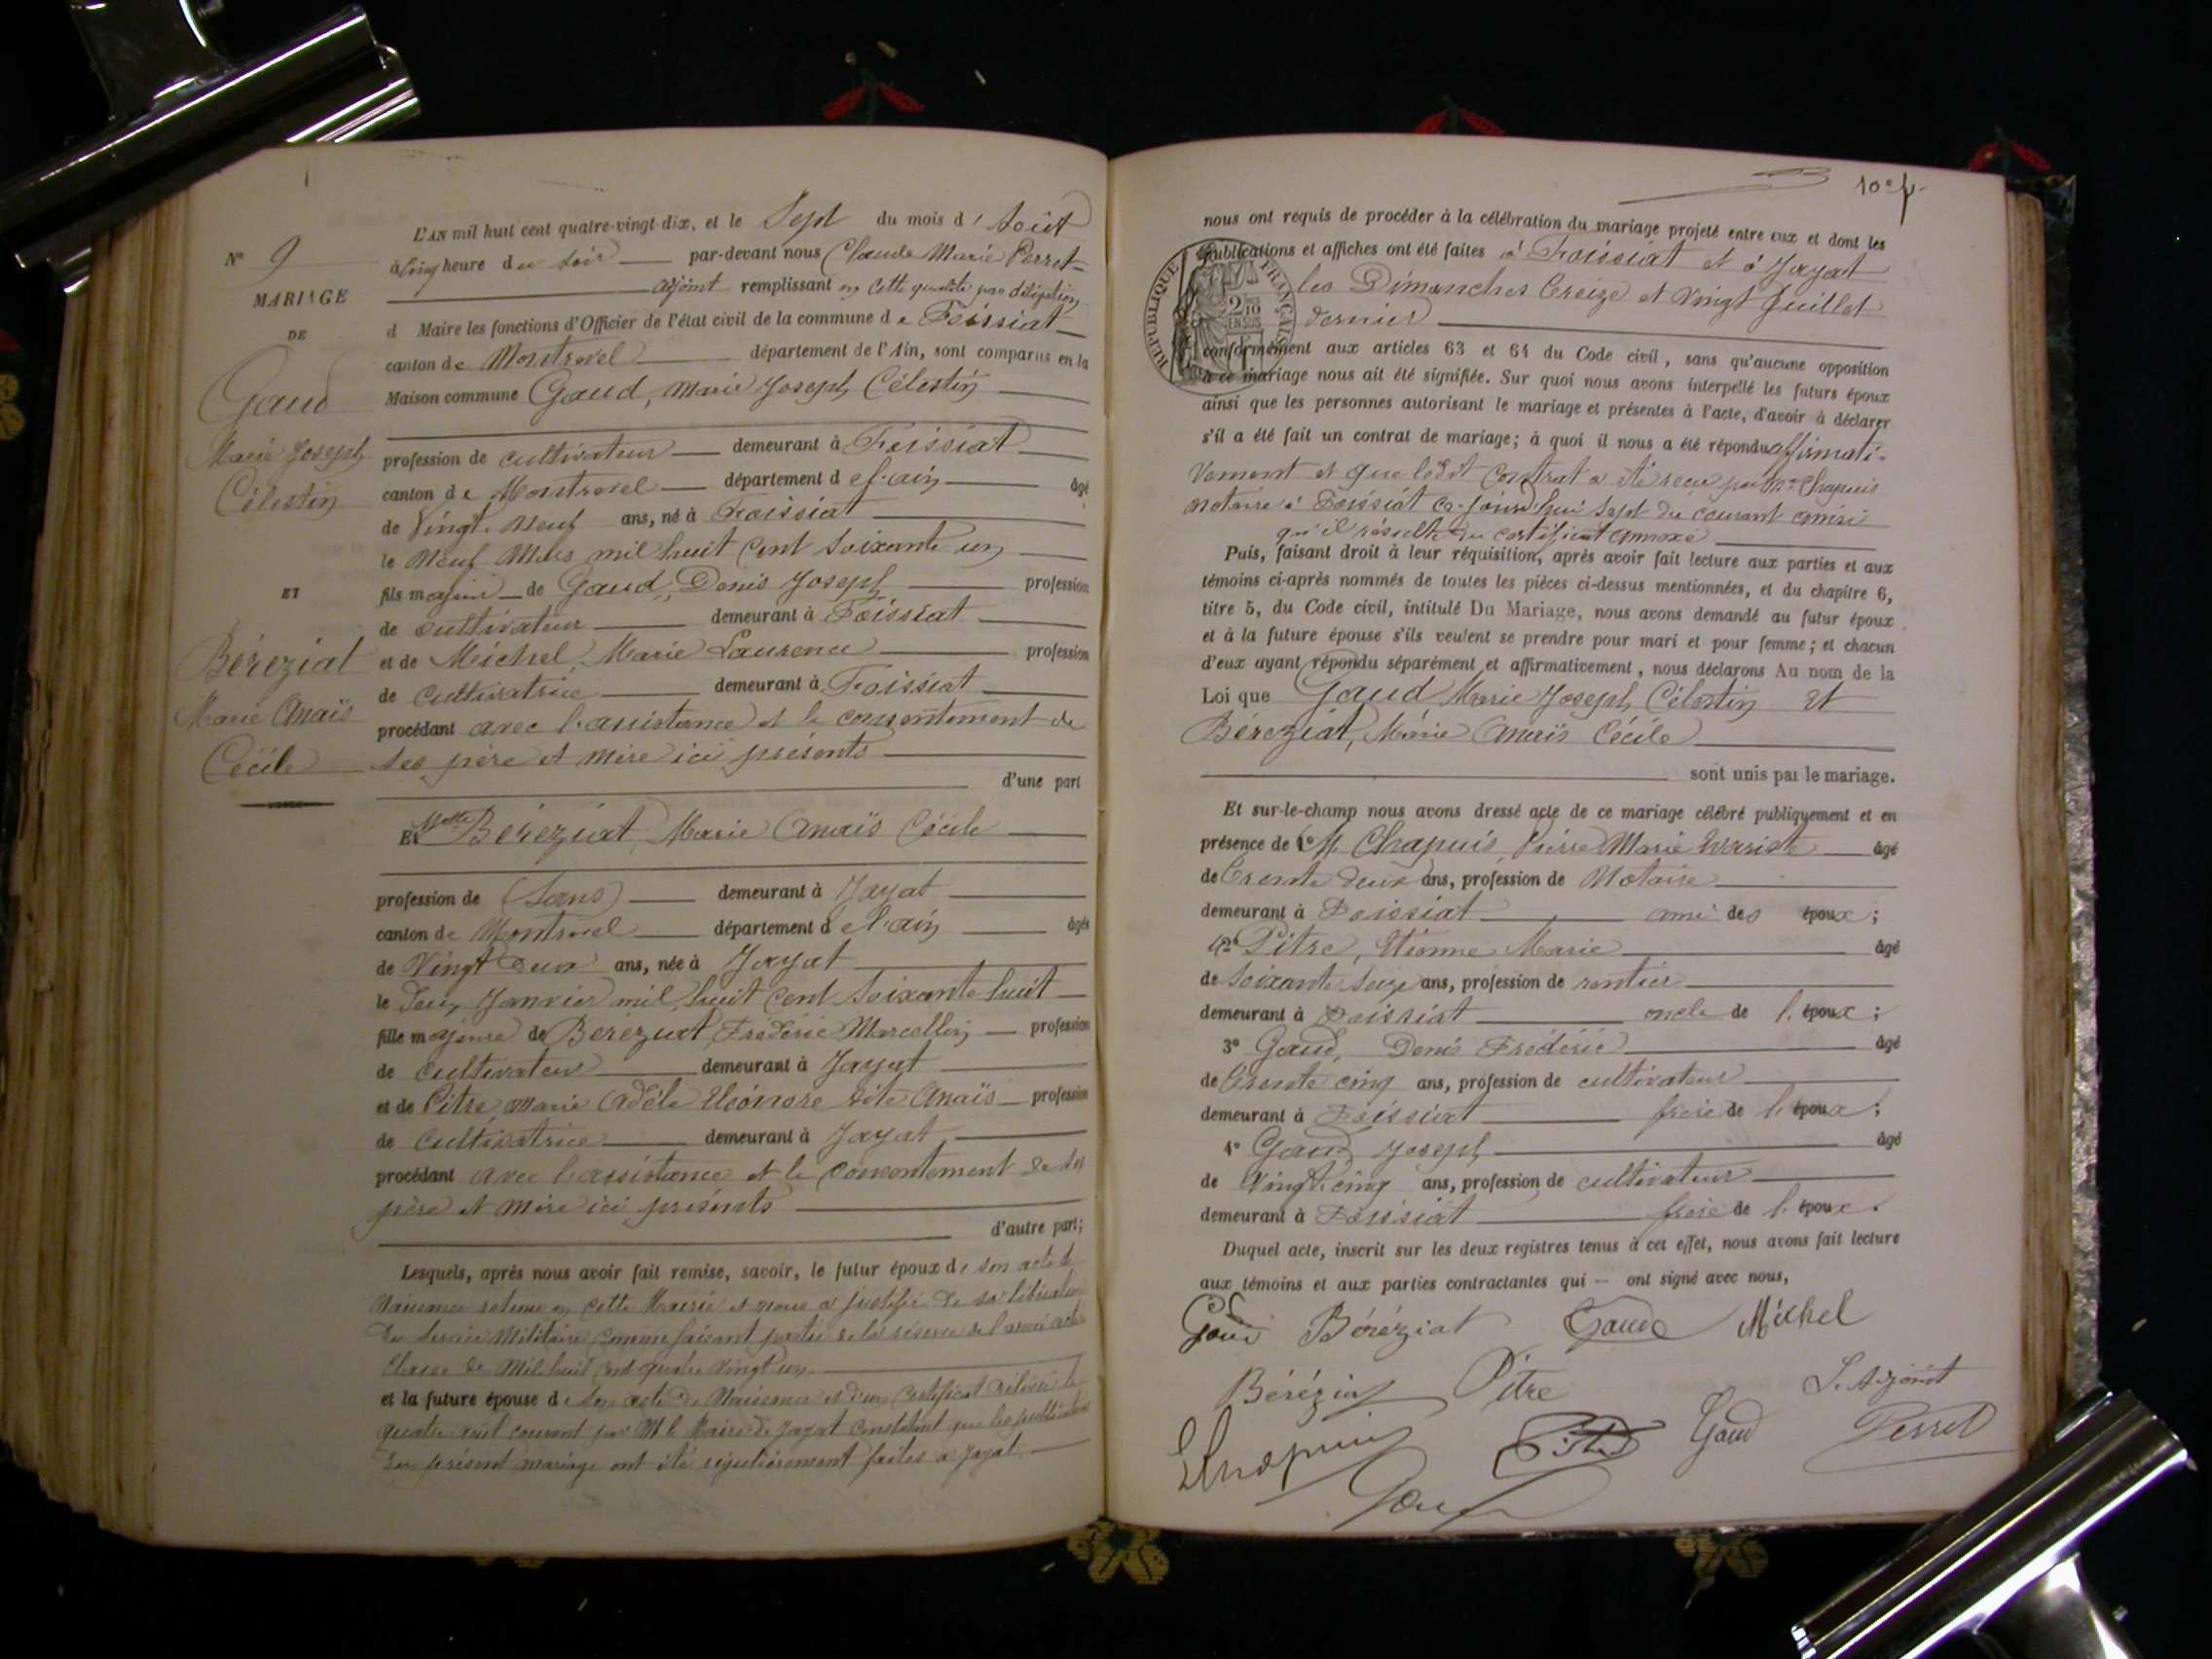 N° 9
MARIAGE
DE
Gaud
Marie Joseph
Célestin
ET
Béréziat
Marie Anaïs
Cécile
L'AN mil huit cent quatre-vingt-dix, et le Sept du mois d' Août
à cinq heure du soir par-devant nous Claude Marie Perret
adjoint remplissant en cette qualité par délégation
d Maire les fonctions d'Officier de l'état civil de la commune de Foissiat
canton de Montrevel département de l'Ain, sont comparus en la
Maison commune Gaud, Marie Joseph Célestin
profession de cultivateur demeurant à Foissiat
canton de Montrevel département de l'ain âgé
de Vingt-Neuf ans, né à Foissiat
le Neuf Mars mil huit Cent Soixante un
fils majeur de Gaud, Denis Joseph profession
de cultivateur demeurant à Foissiat
et de Michel, Marie Laurence profession
de cultivatrice demeurant à Foissiat
procédant avec l'assistance et le consentement de
ses père et mère ici présents
d'une part
Et Melle Béréziat, Marie Anaïs Cécile
profession de (Sans) demeurant à Jayat
canton de Montrevel département de l'ain âgée
de Vingt Deux ans, née à Jayat
le Deux Janvier mil huit Cent Soixante huit
fille majeure de Béréziat, Frédéric Marcellin profession
de cultivateur demeurant à Jayat
et de Pitre Marie Adèle Eléonore dite Anaïs profession
de Cultivatrice demeurant à Jayat
procédant avec l'assistance et le consentement de ses
père et mère ici présents
d'autre part;
Lesquels, après nous avoir fait remise, savoir, le futur époux de son acte de
Naissance retenu en cette Mairie et nous a justifié de sa libération
du Service Militaire comme faisant partie de la réserve de l'armée active
Classe de Mil huit Cent quatre Vingt un
et la future épouse de son acte de Naissance et d'un Certificat délivré le
quatre août courant par M le Maire de Jayat Constatant que les publications
du présent mariage ont été régulièrement faites à Jayat
10e f.
nous ont requis de procéder à la célébration du mariage projeté entre eux et dont les
publications et affiches ont été faites à Foissiat et à Jayat
les Dimanches Treize et Vingt Juillet
dernier
RÉPUBLIQUE FRANÇAISE
2/10 EN SUS
conformément aux articles 63 et 64 du Code civil, sans qu'aucune opposition
à ce mariage nous ait été signifiée. Sur quoi nous avons interpellé les futurs époux
ainsi que les personnes autorisant le mariage et présentes à l'acte, d'avoir à déclarer
s'il a été fait un contrat de mariage; à quoi il nous a été répondu affirmati-
vement et que ledit Contrat a été reçu par Me Chapuis
Notaire à Foissiat ce-jourd'hui Sept du courant ainsi
qu'il résulte du certificat annexé
Puis, faisant droit à leur réquisition, après avoir fait lecture aux parties et aux
témoins ci-après nommés de toutes les pièces ci-dessus mentionnées, et du chapitre 6,
titre 5, du Code civil, intitulé Du Mariage, nous avons demandé au futur époux
et à la future épouse s'ils veulent se prendre pour mari et pour femme; et chacun
d'eux ayant répondu séparément et affirmativement, nous déclarons Au nom de la
Loi que Gaud Marie Joseph Célestin Et
Béréziat, Marie Anaïs Cécile
sont unis par le mariage.
Et sur-le-champ nous avons dressé acte de ce mariage célébré publiquement et en
présence de 1° M. Chapuis, Pierre Marie Evariste âgé
de Trente Deux ans, profession de Notaire
demeurant à Foissiat ami des époux;
2° Pitre, Etienne Marie âgé
de Soixante Seize ans, profession de rentier
demeurant à Foissiat oncle de l'époux;
3° Gaud, Denis Frédéric âgé
de Trente cinq ans, profession de cultivateur
demeurant à Foissiat frère de l'époux;
4° Gaud Joseph âgé
de Vingt-cinq ans, profession de cultivateur
demeurant à Foissiat frère de l'époux.
Duquel acte, inscrit sur les deux registres tenus à cet effet, nous avons fait lecture
aux témoins et aux parties contractantes qui -- ont signé avec nous,
Gaud Béréziat Gaud Michel
Béréziat Pitre L'adjoint
Chapuis Pitre Gaud Perret
Gaud